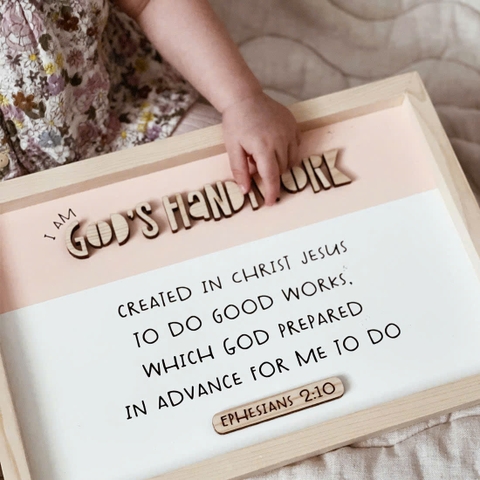 I AM
GOD'S HANDIWORK
CREATED IN CHRIST JESUS
TO DO GOOD WORKS,
WHICH GOD PREPARED
IN ADVANCE FOR ME TO DO
EPHESIANS 2:10